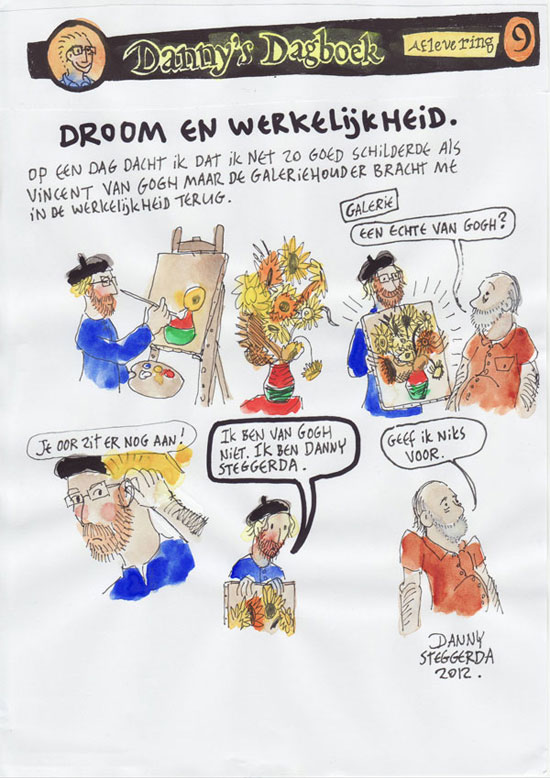 Danny's Dagboek
Aflevering
9
DROOM EN WERKELIJKHEID.
OP EEN DAG DACHT IK DAT IK NET ZO GOED SCHILDERDE ALS
VINCENT VAN GOGH MAAR DE GALERIEHOUDER BRACHT ME
IN DE WERKELIJKHEID TERUG.
GALERIE
EEN ECHTE VAN GOGH?
JE OOR ZIT ER NOG AAN!
IK BEN VAN GOGH
NIET. IK BEN DANNY
STEGGERDA.
GEEF IK NIKS
VOOR.
DANNY
STEGGERDA
2012.